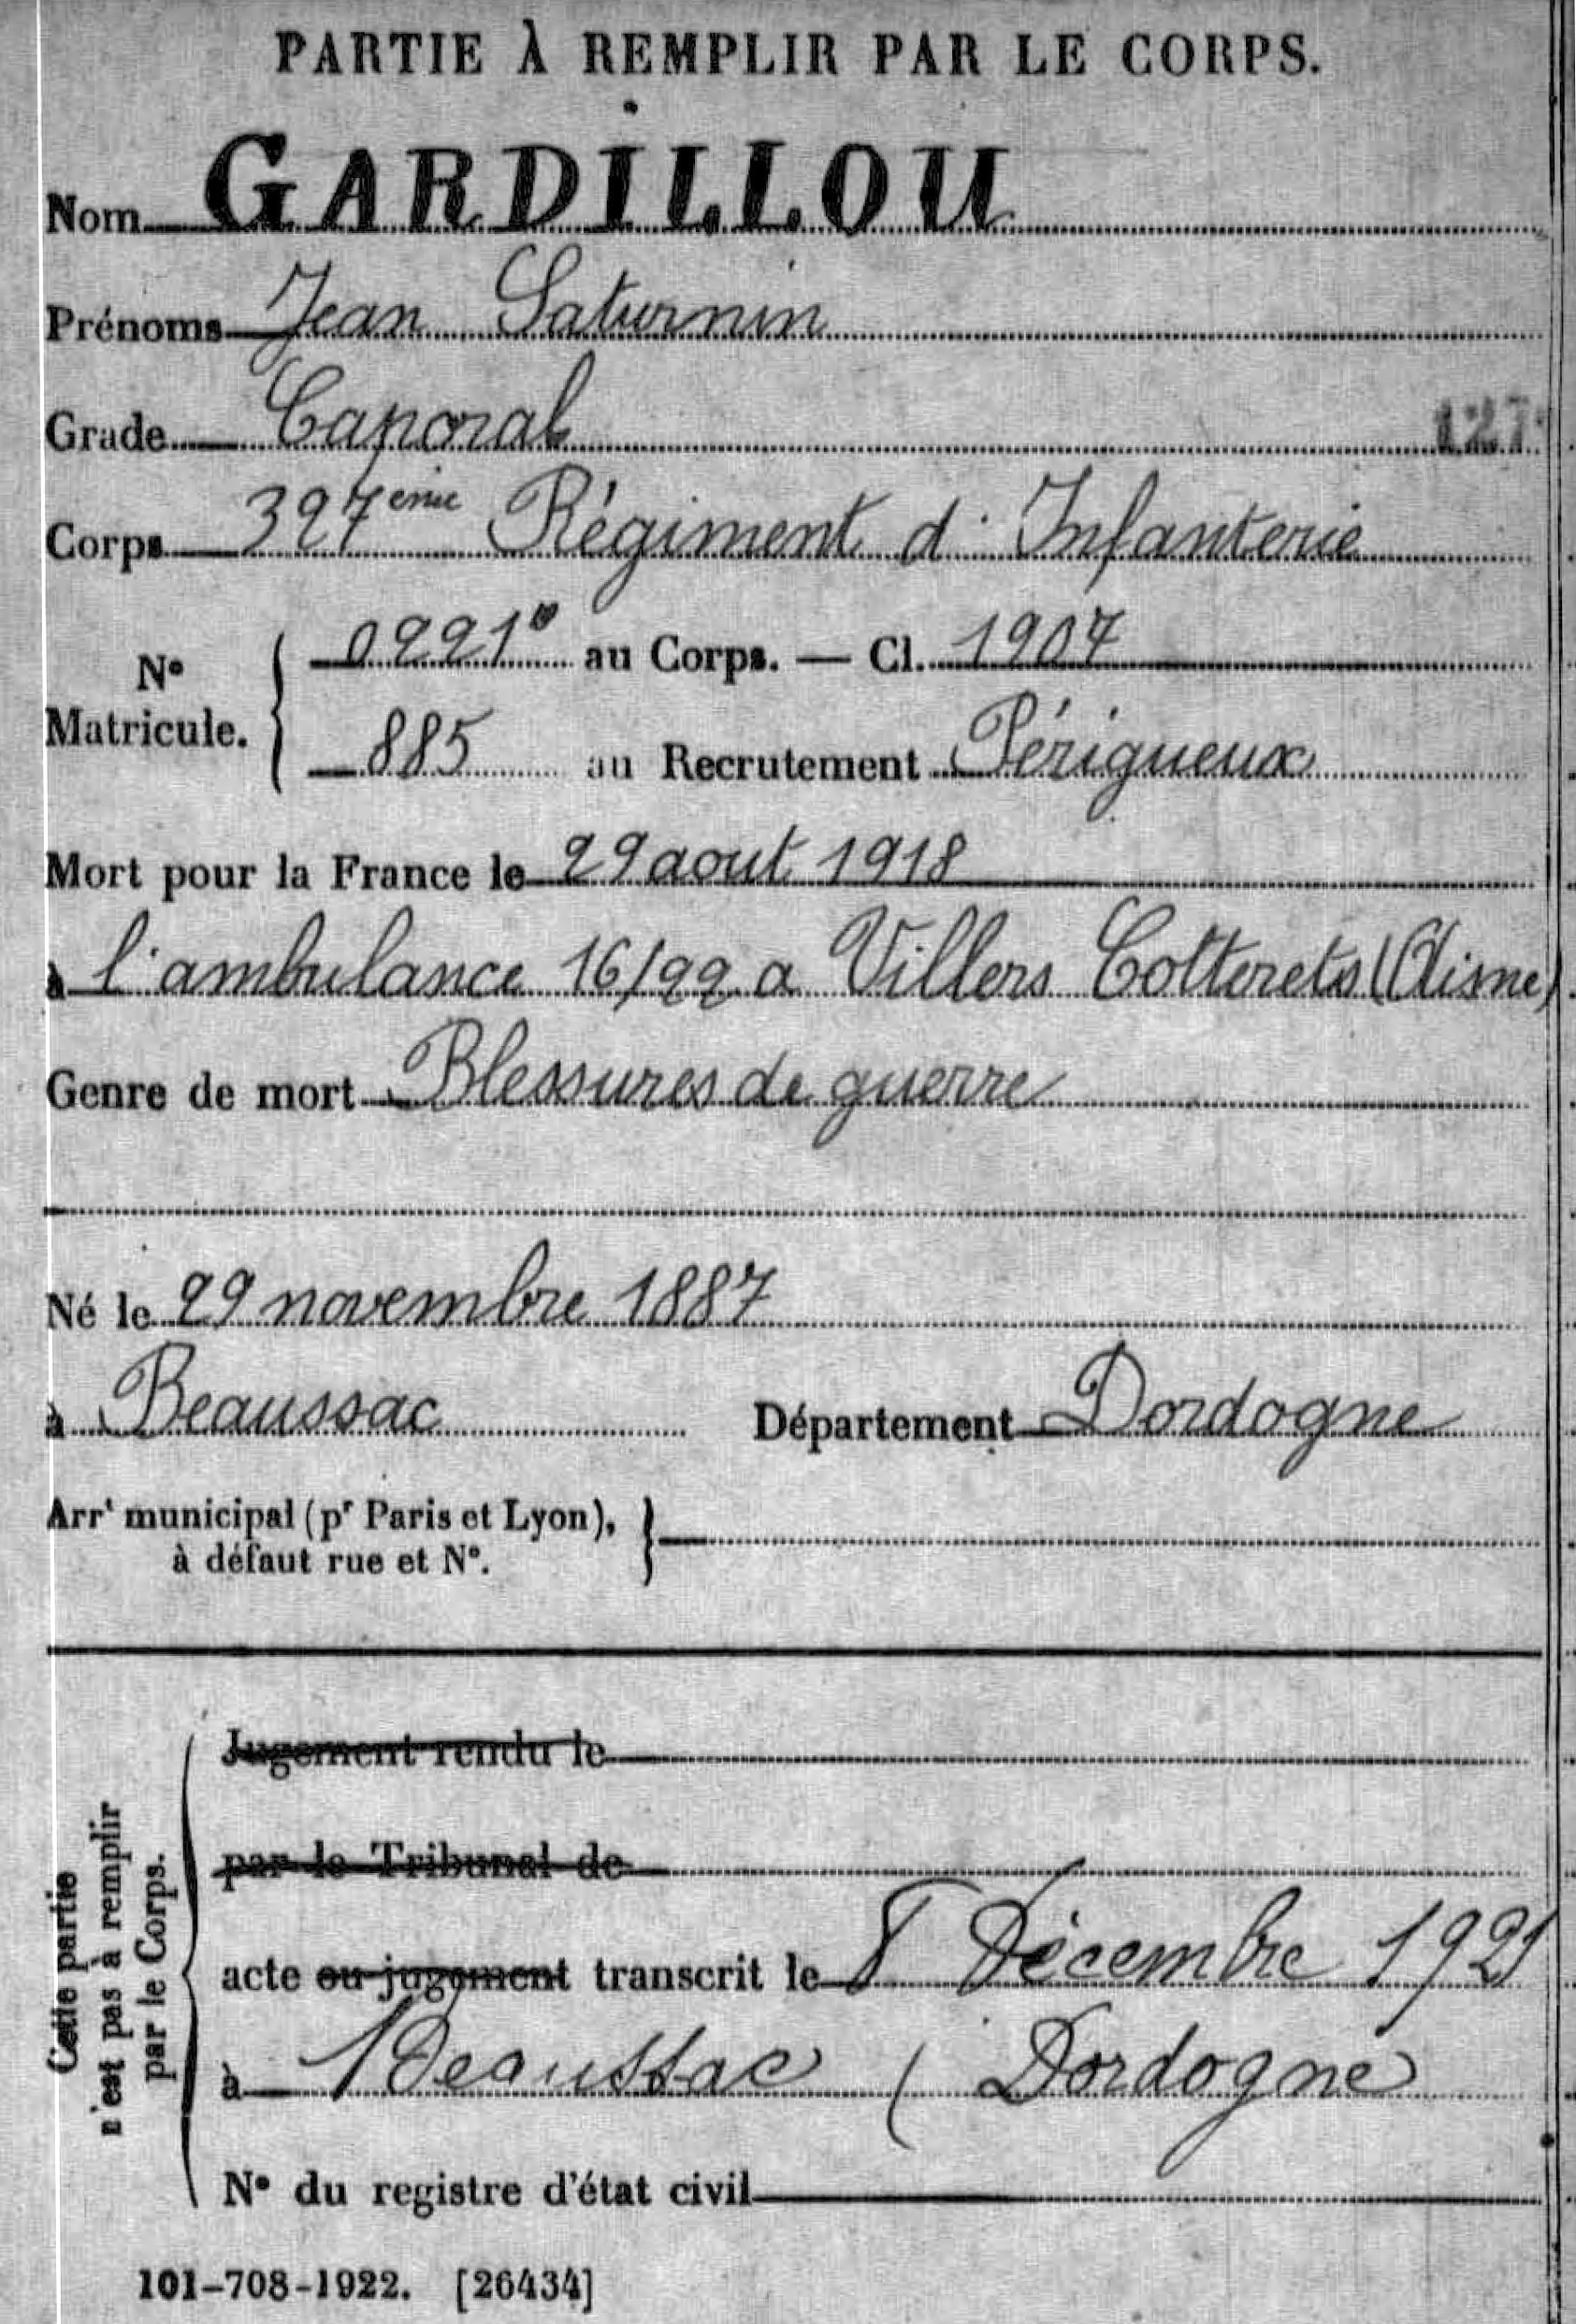 PARTIE À REMPLIR PAR LE CORPS.
Nom GARDILLOU
Prénoms Jean Saturnin
Grade Caporal
127
Corps 327ème Régiment d'Infanterie
N° Matricule. { 02210 au Corps. — Cl. 1907
885 au Recrutement Périgueux
Mort pour la France le 29 aout 1918
à l'ambulance 16/22 a Villers Cotterets (Aisne)
Genre de mort Blessures de guerre
Né le 29 novembre 1887
à Beaussac Département Dordogne
Arrt municipal (pr Paris et Lyon),
à défaut rue et N°.
Cette partie
n'est pas à remplir
par le Corps.
Jugement rendu le
par le Tribunal de
acte ou jugement transcrit le 8 Décembre 1921
à Beaussac ( Dordogne
N° du registre d'état civil
101-708-1922. [26434]